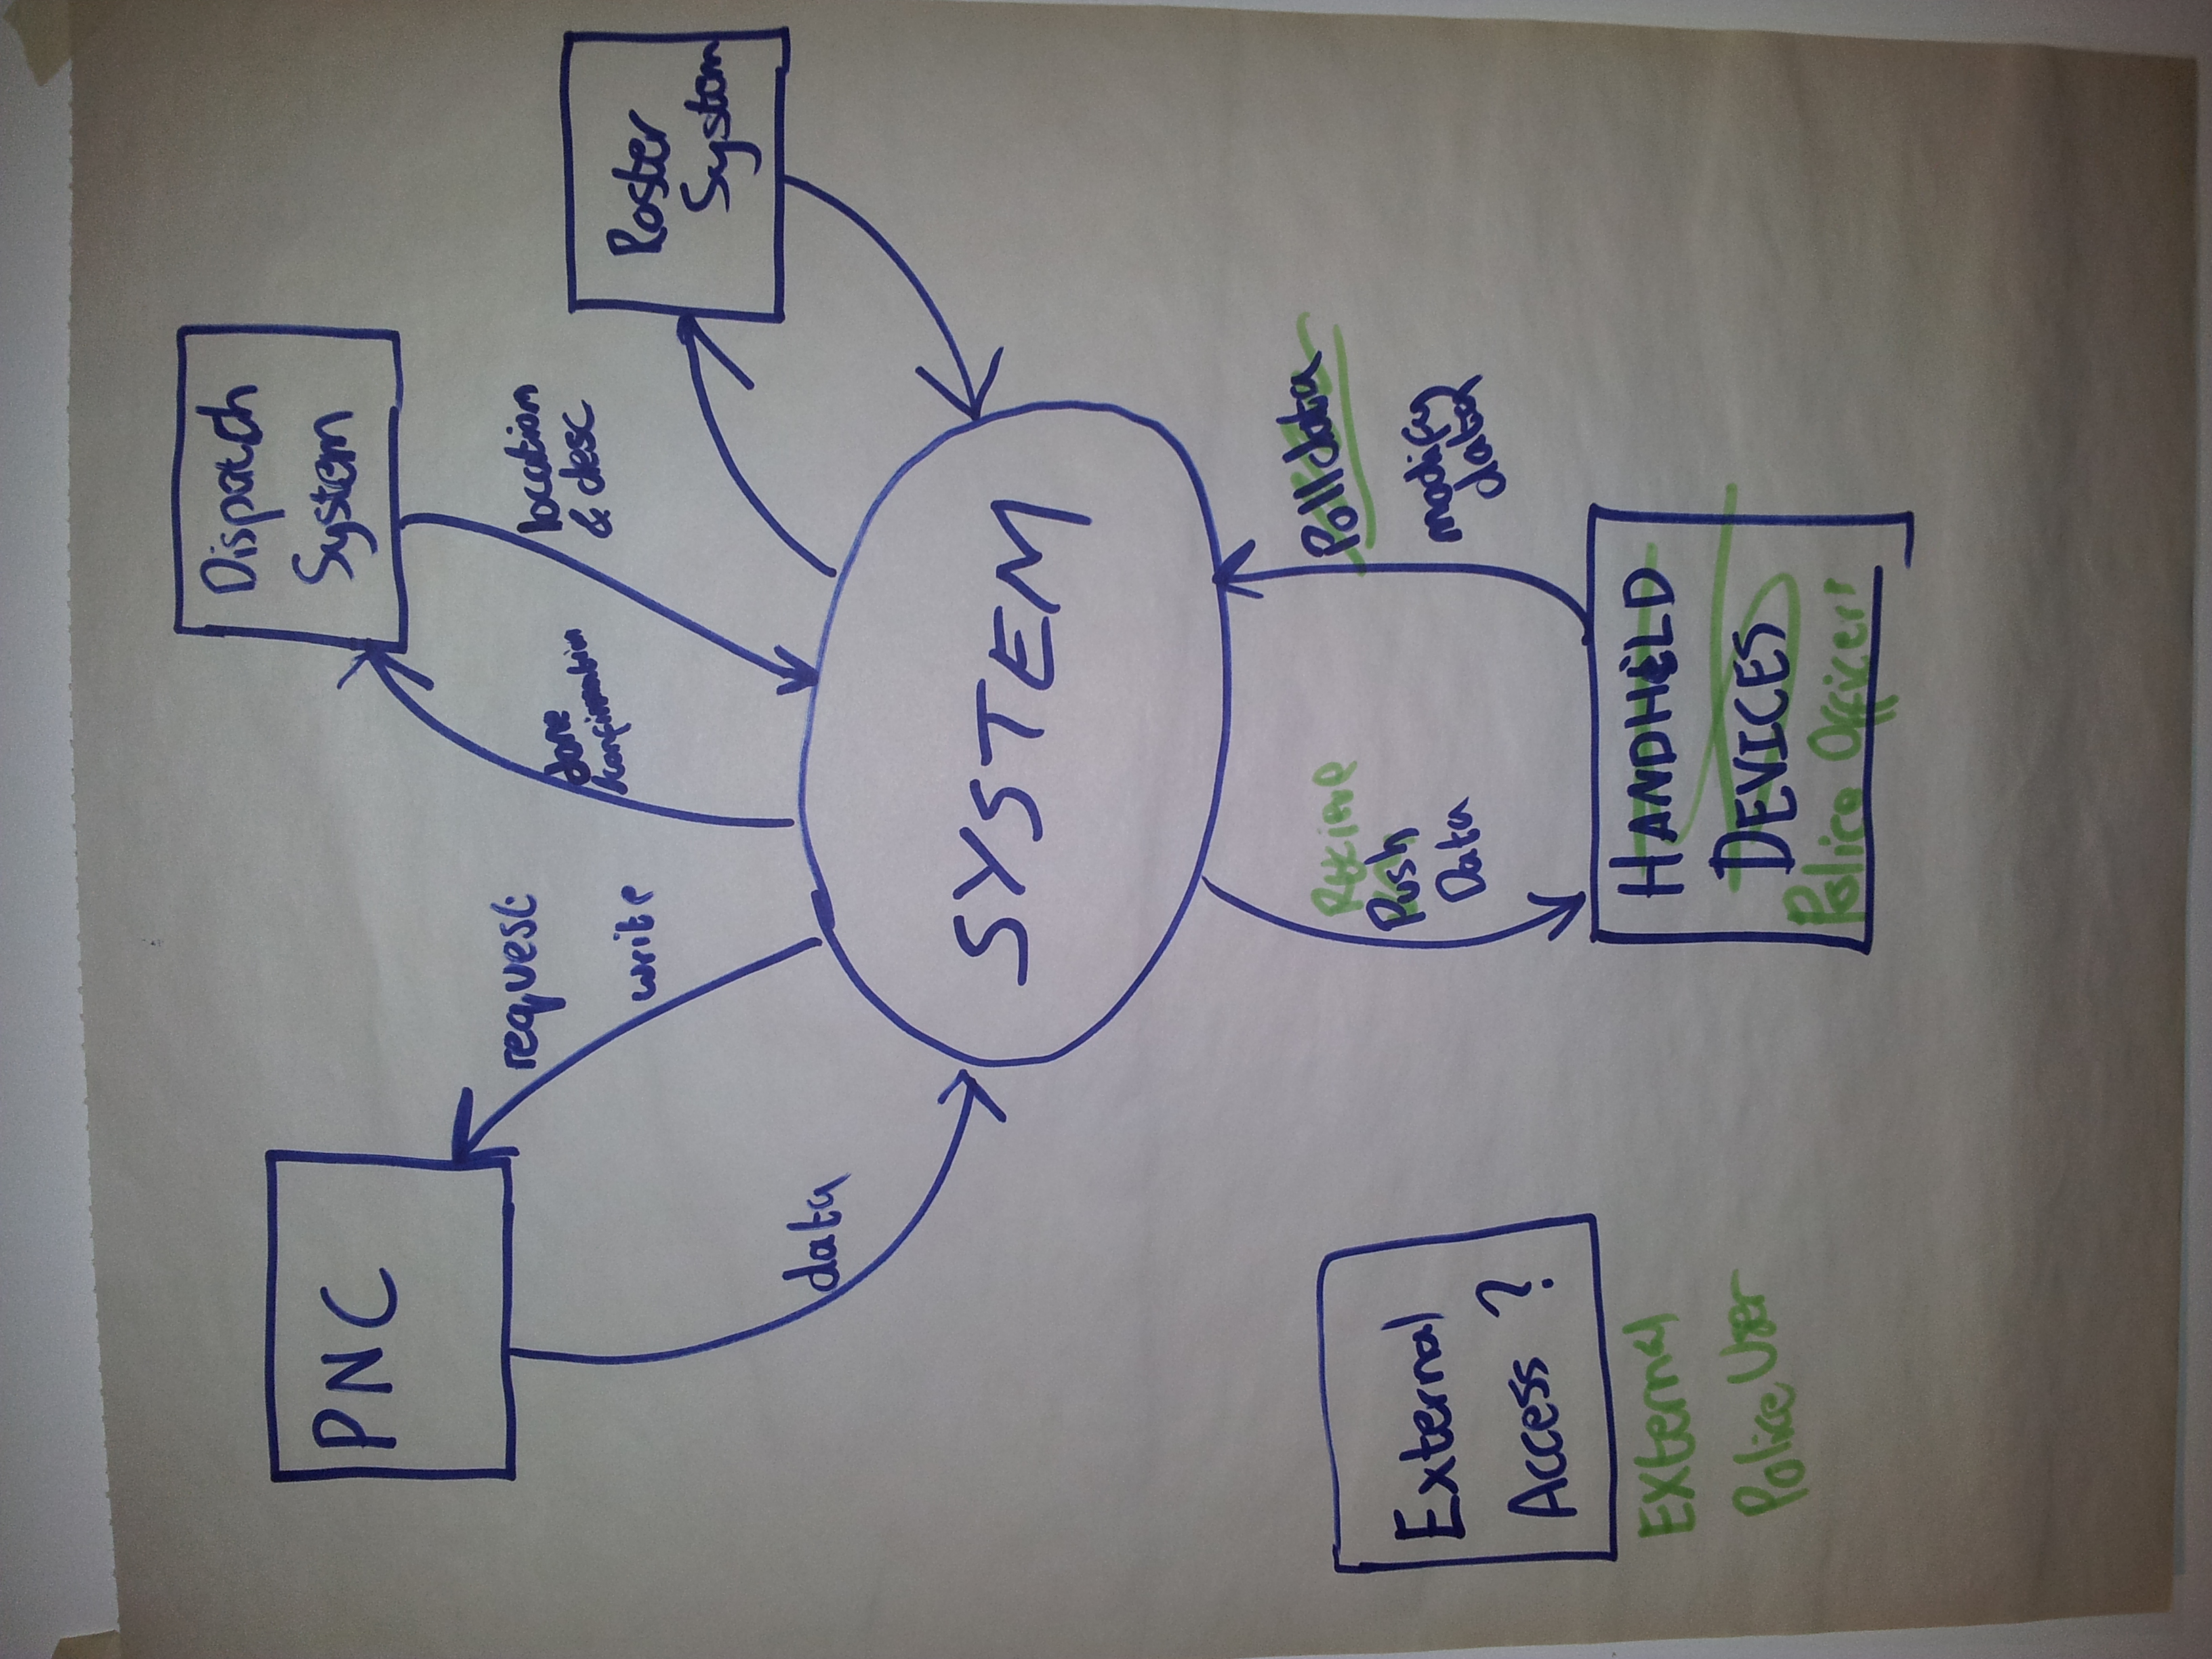 Dispatch
System
PNC
request
write
done
/confirmation
location
& desc
Roster
System
data
SYSTEM
Recieve
Push
Data
Poll data
modify
data
External
Access ?
External
Police User
HANDHELD
DEVICES
Police Officers